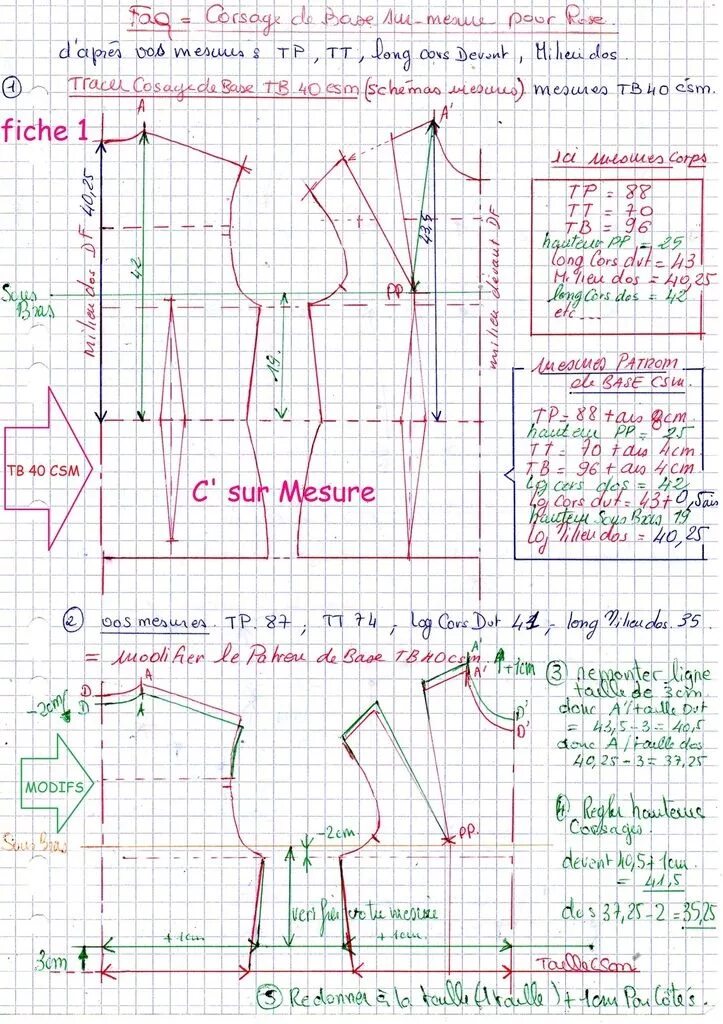 FAQ = Corsage de Base sur-mesure pour Rose.
d'après vos mesures TP, TT, long cors Devant, Milieu dos.
① Tracer Cosage de Base TB 40 csm (schémas mesures) mesures TB 40 csm.
fiche 1
A
A'
ici mesures corps
TP = 88
TT = 70
TB = 96
hauteur PP = 25
long Cors dvt = 43
Milieu dos = 40,25
long Cors dos = 42
etc....
milieu dos DF
40,25
42
43,5
milieu devant DF
Sous Bras
PP
19.
mesures PATRON
de BASE CSM.
TP = 88 + ais 8cm
hauteur PP = 25
TT = 70 + ais 4cm
TB = 96 + ais 4cm
Lg cors dos = 42
Lg cors dvt = 43 + 0,5 ais
hauteur Sous Bras 19
Lg Milieu dos = 40,25
TB 40 CSM
C' sur Mesure
② vos mesures. TP. 87, TT 74, Log Cors Dvt 41, - long Milieu dos. 35
= modifier le Patron de Base TB 40 csm.
A
A
D
D
-2cm
A'
A'
+1cm
D'
D'
③ remonter ligne
taille de 3cm.
donc A'/taille Dvt
= 43,5 - 3 = 40,5
donc A/taille dos
40,25 - 3 = 37,25
MODIFS
④ Régler hauteurs
Corsages.
devant 40,5 + 1cm
= 41,5
dos 37,25 - 2 = 35,25
Sous Bras
-2cm
PP.
verifier votre mesure
+1cm
+1cm
3cm
Taille CSM
⑤ Redonner à la taille (1 taille) + 1cm Par Côtés.